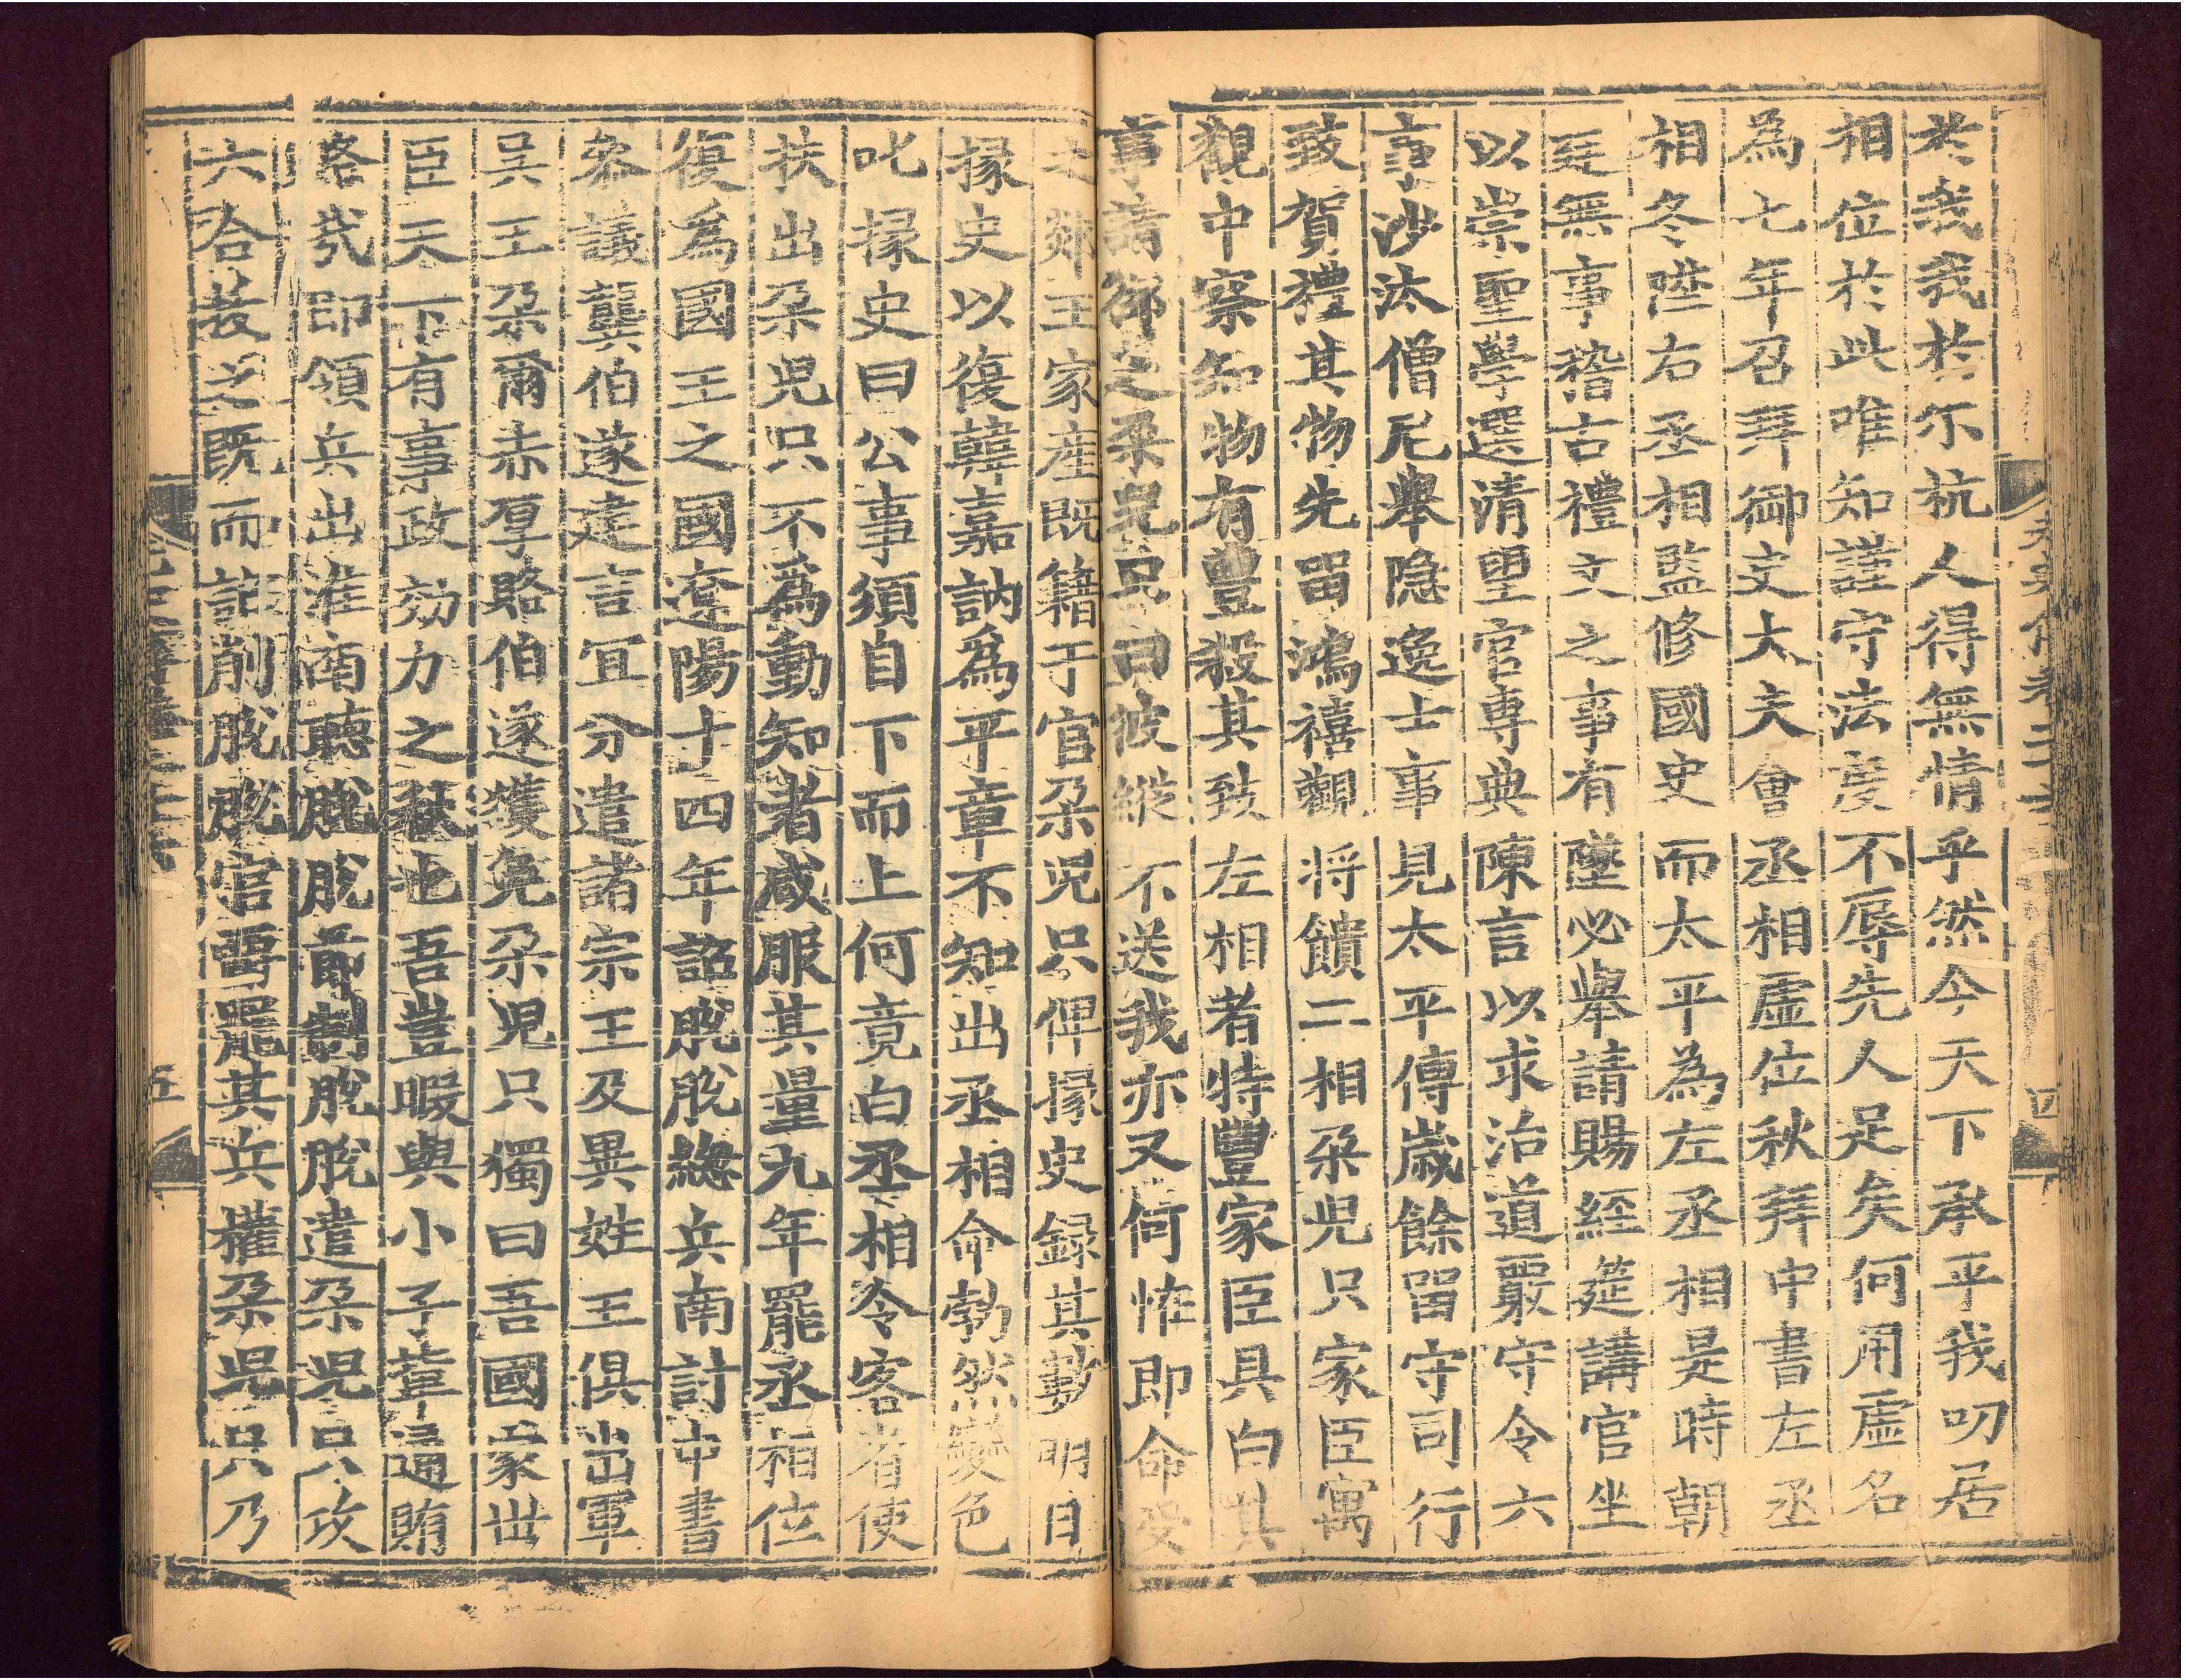 於我我於尓杭人得無情乎然今天下承平我叨居
相位於此唯知謹守法度不辱先人足矣何用虛名
為七年召拜御史大夫會丞相虛位秋拜中書左丞
相冬陞右丞相監修國史而太平為左丞相是時朝
廷無事稽古禮文之事有墜必舉請賜經筵講官坐
以崇聖學選清望官專典陳言以求治道嚴守令六
事沙汰僧尼舉隐逸士事見太平傳歲餘留守司行
致賀禮其物先留鴻禧觀将饋二相朶児只家臣寓
觀中察知物有豊殺其致左相者特豐家臣具白其
事請却之朶児只曰彼縱不送我亦又何恠即命受
之郯王家産既籍于官朶児只俾掾史録其數明日
掾史以復韓嘉訥為平章不知出丞相命勃然變色
叱掾史曰公事須自下而上何竟白丞相令客省使
扶出朶児只不為動知者咸服其量九年罷丞相位
復為國王之國遼陽十四年詔脫脫緫兵南討中書
叅議龔伯遂建言宜分遣諸宗王及異姓王俱出軍
吳王朶爾赤厚賂伯遂獲免朶児只獨曰吾國家世
臣天下有事政効力之秋也吾豈暇與小子輩通賄
賂哉即領兵出淮南聽脫脫節制脫脫遣朶児只攻
六合㧞之既而詔削脫脫官爵罷其兵權朶児只乃